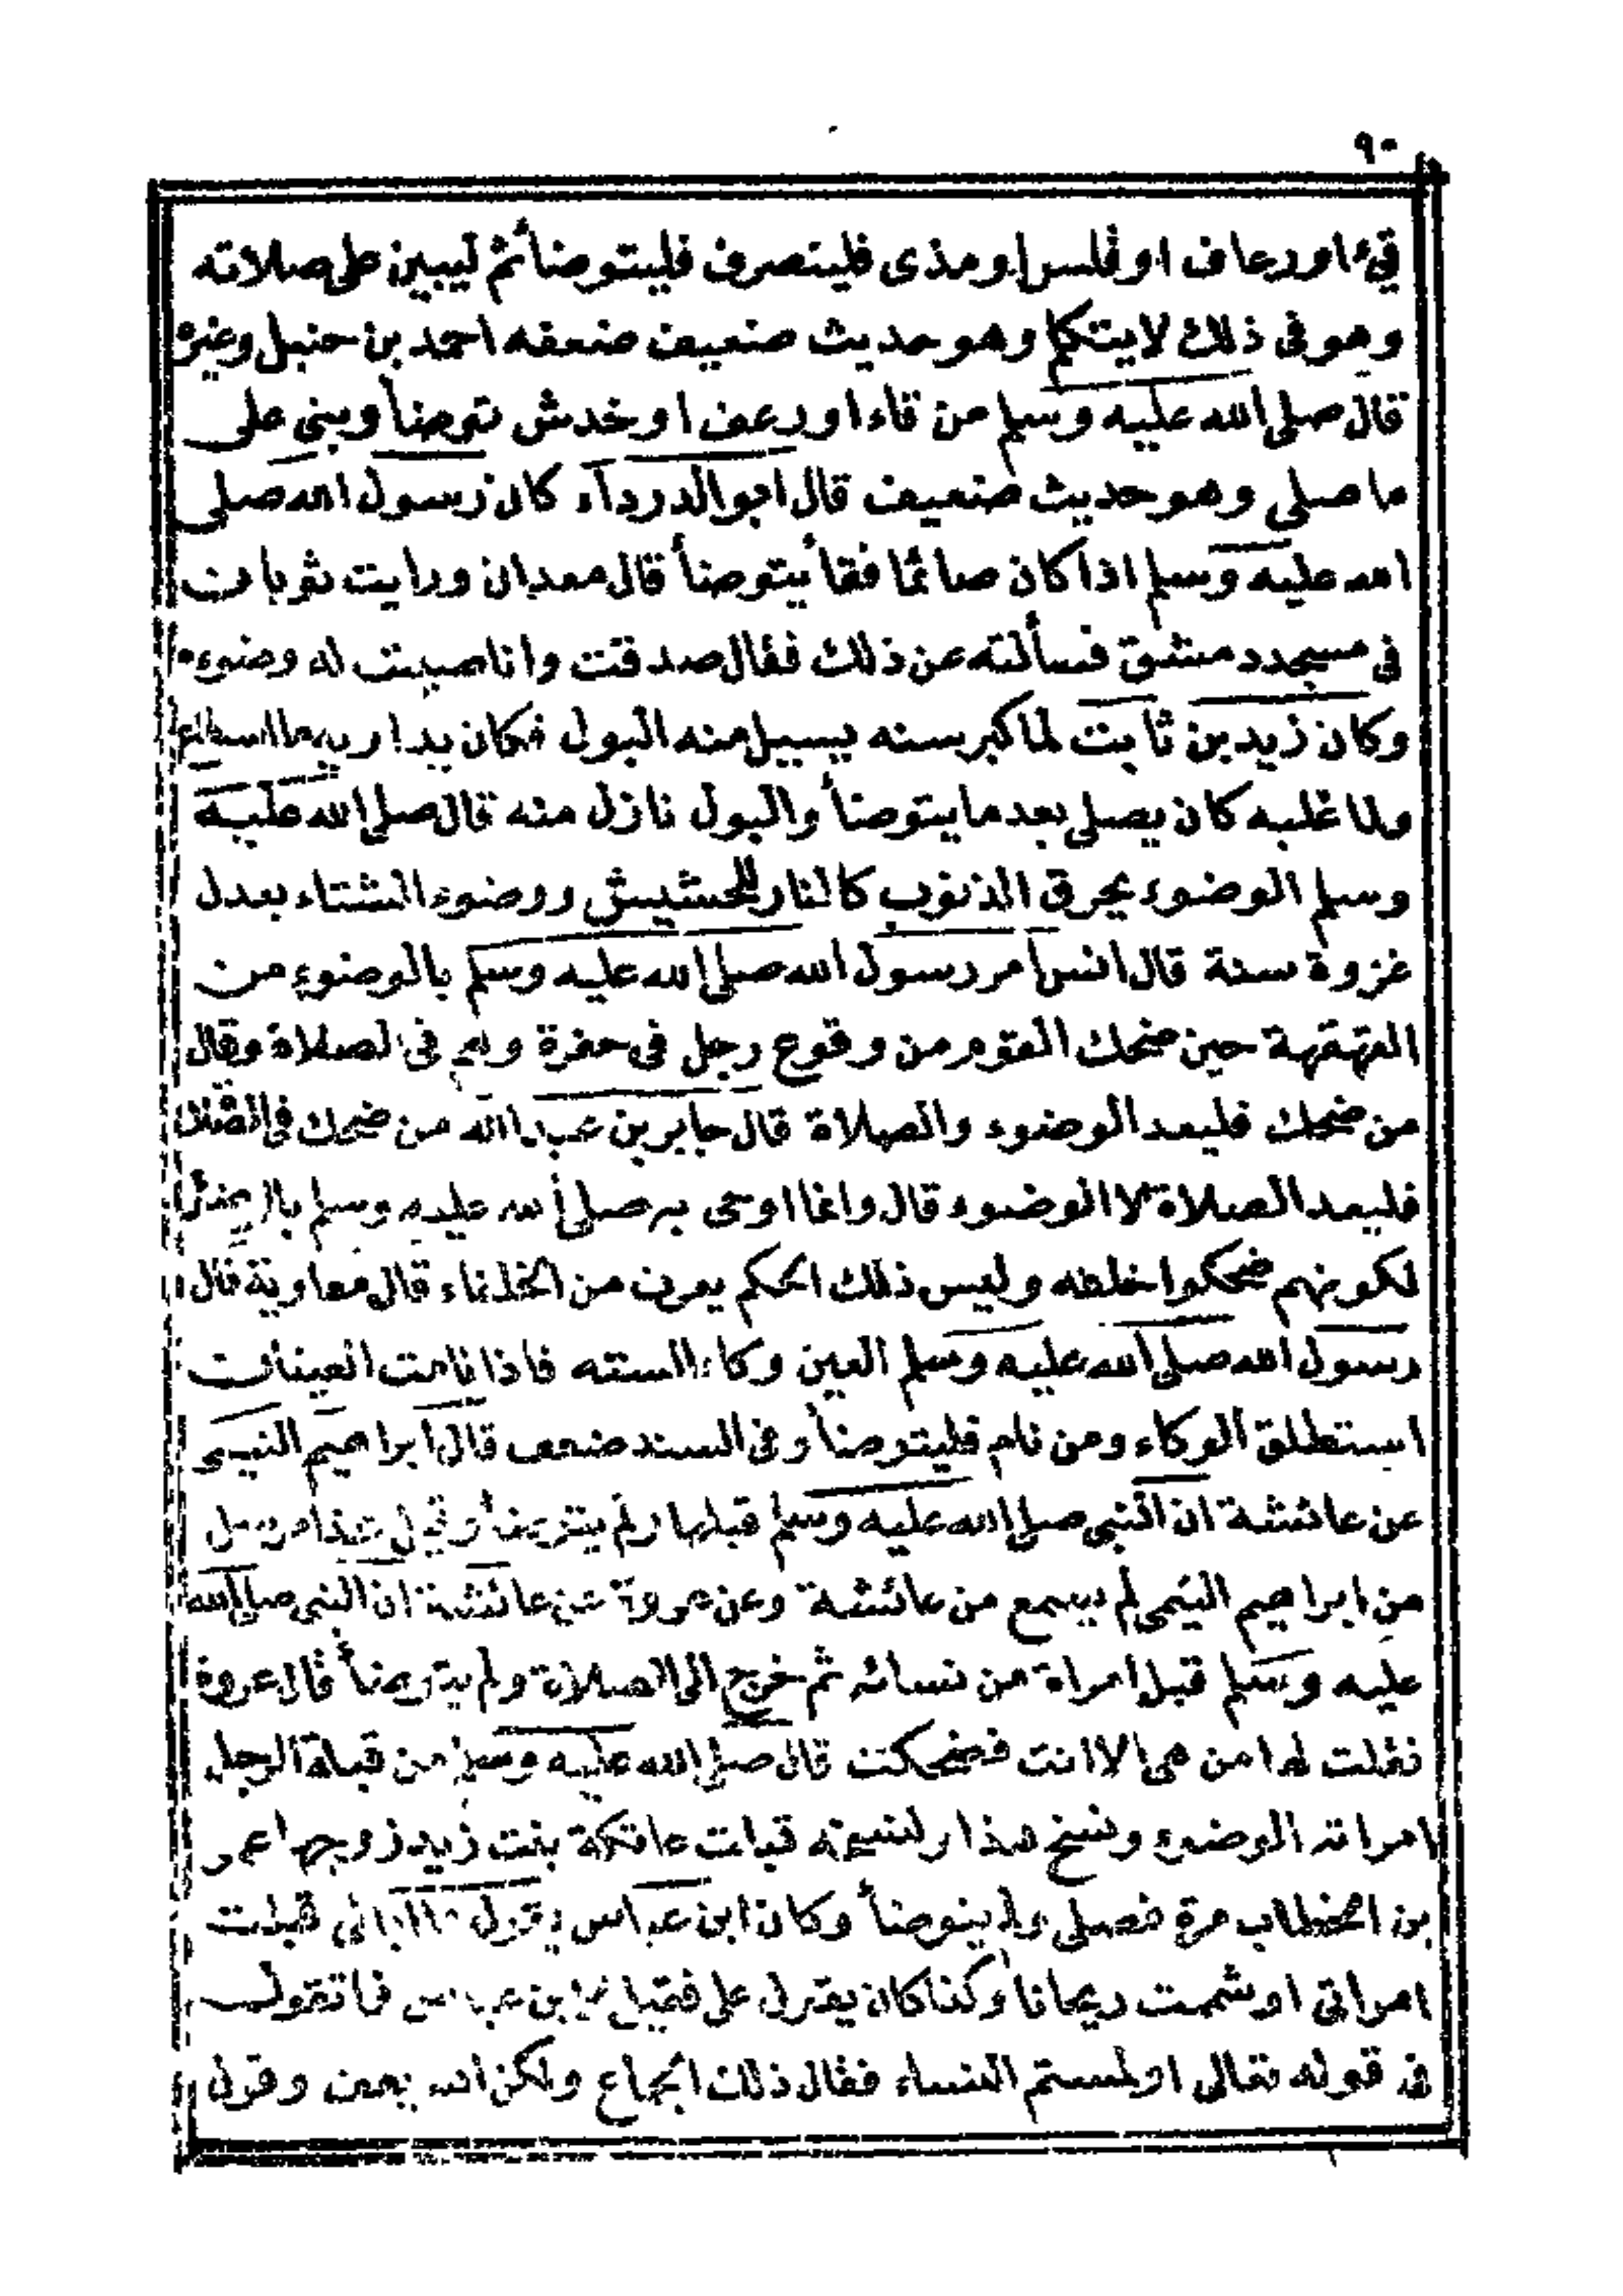 ٩٠
قيء او رعاف او قلس او مذى فلينصرف فليتوضأ ثم ليبين على صلاته
وهو فى ذلك لايتكلم وهو حديث ضعيف ضعفه احمد بن حنبل وغيره
قال صلى الله عليه وسلم من قاء او رعف او خدش توضأ وبنى على
ما صلى وهو حديث ضعيف قال ابو الدرداء كان رسول الله صلى
الله عليه وسلم اذا كان صائما فقأ يتوضأ قال معدان ورايت ثوبان
فى مسجد دمشق فسألته عن ذلك فقال صدقت وانا صببت له وضوءه
وكان زيد بن ثابت لما كبر سنه يسيل منه البول فكان يداريه ما استطاع
ولما غلبه كان يصلى بعد ما يتوضأ والبول نازل منه قال صلى الله عليه
وسلم الوضوء يحرق الذنوب كالنار للحشيش ووضوء الشتاء يعدل
غزوة سنة قال انس امر رسول الله صلى الله عليه وسلم بالوضوء من
القهقهة حين ضحك القوم من وقوع رجل فى حفرة وهم فى الصلاة وقال
من ضحك فليعد الوضوء والصلاة قال جابر بن عبد الله من ضحك فى الصلاة
فليعد الصلاة لا الوضوء قال وانما اوحى به صلى الله عليه وسلم
لكونهم ضحكوا خلفه وليس ذلك الحكم يعرف من الخلفاء قال معاوية قال
رسول الله صلى الله عليه وسلم العين وكاء السته فاذا نامت العينان
استطلق الوكاء ومن نام فليتوضأ وفى السند ضعف قال ابراهيم التيمى
عن عائشة ان النبى صلى الله عليه وسلم قبلها ولم يتوضأ وقيل هذا مرسل
من ابراهيم التيمى لم يسمع من عائشة وعن عروة عن عائشة ان النبى صلى الله
عليه وسلم قبل امراة من نسائه ثم خرج الى الصلاة ولم يتوضأ قال عروة
فقلت لها من هى الا انت فضحكت قال صلى الله عليه وسلم من قبلة الرجل
امراته الوضوء ونسخ هذا ولنسخه قبلت عاتكة بنت زيد زوجها عمر
بن الخطاب مرة فصلى ولم يتوضأ وكان ابن عباس يقول ما ابالى قبلت
امراتى او شممت ريحانا وكذا كان يقول على فقيل لابن عباس فما تقول
فى قوله تعالى او لمستم النساء فقال ذلك الجماع ولكن الله يعف وقول